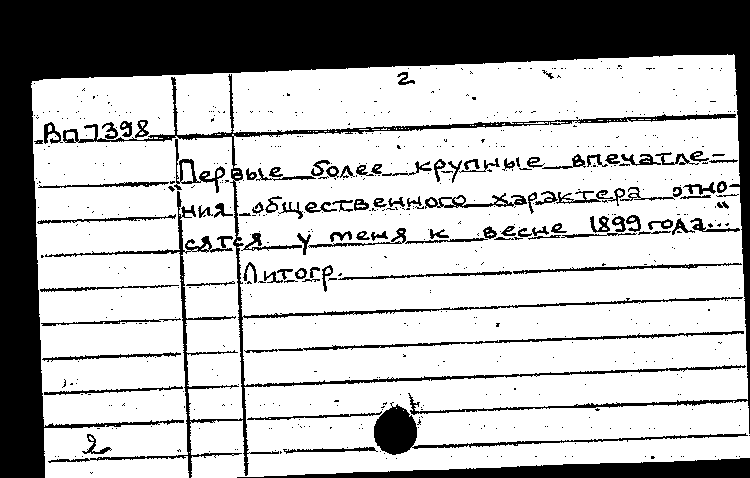 2
Вп 7398
„Первые более крупные впечатле=
ния общественного характера отно-
сятся у меня к весне 1899 года..."
Литогр.
2